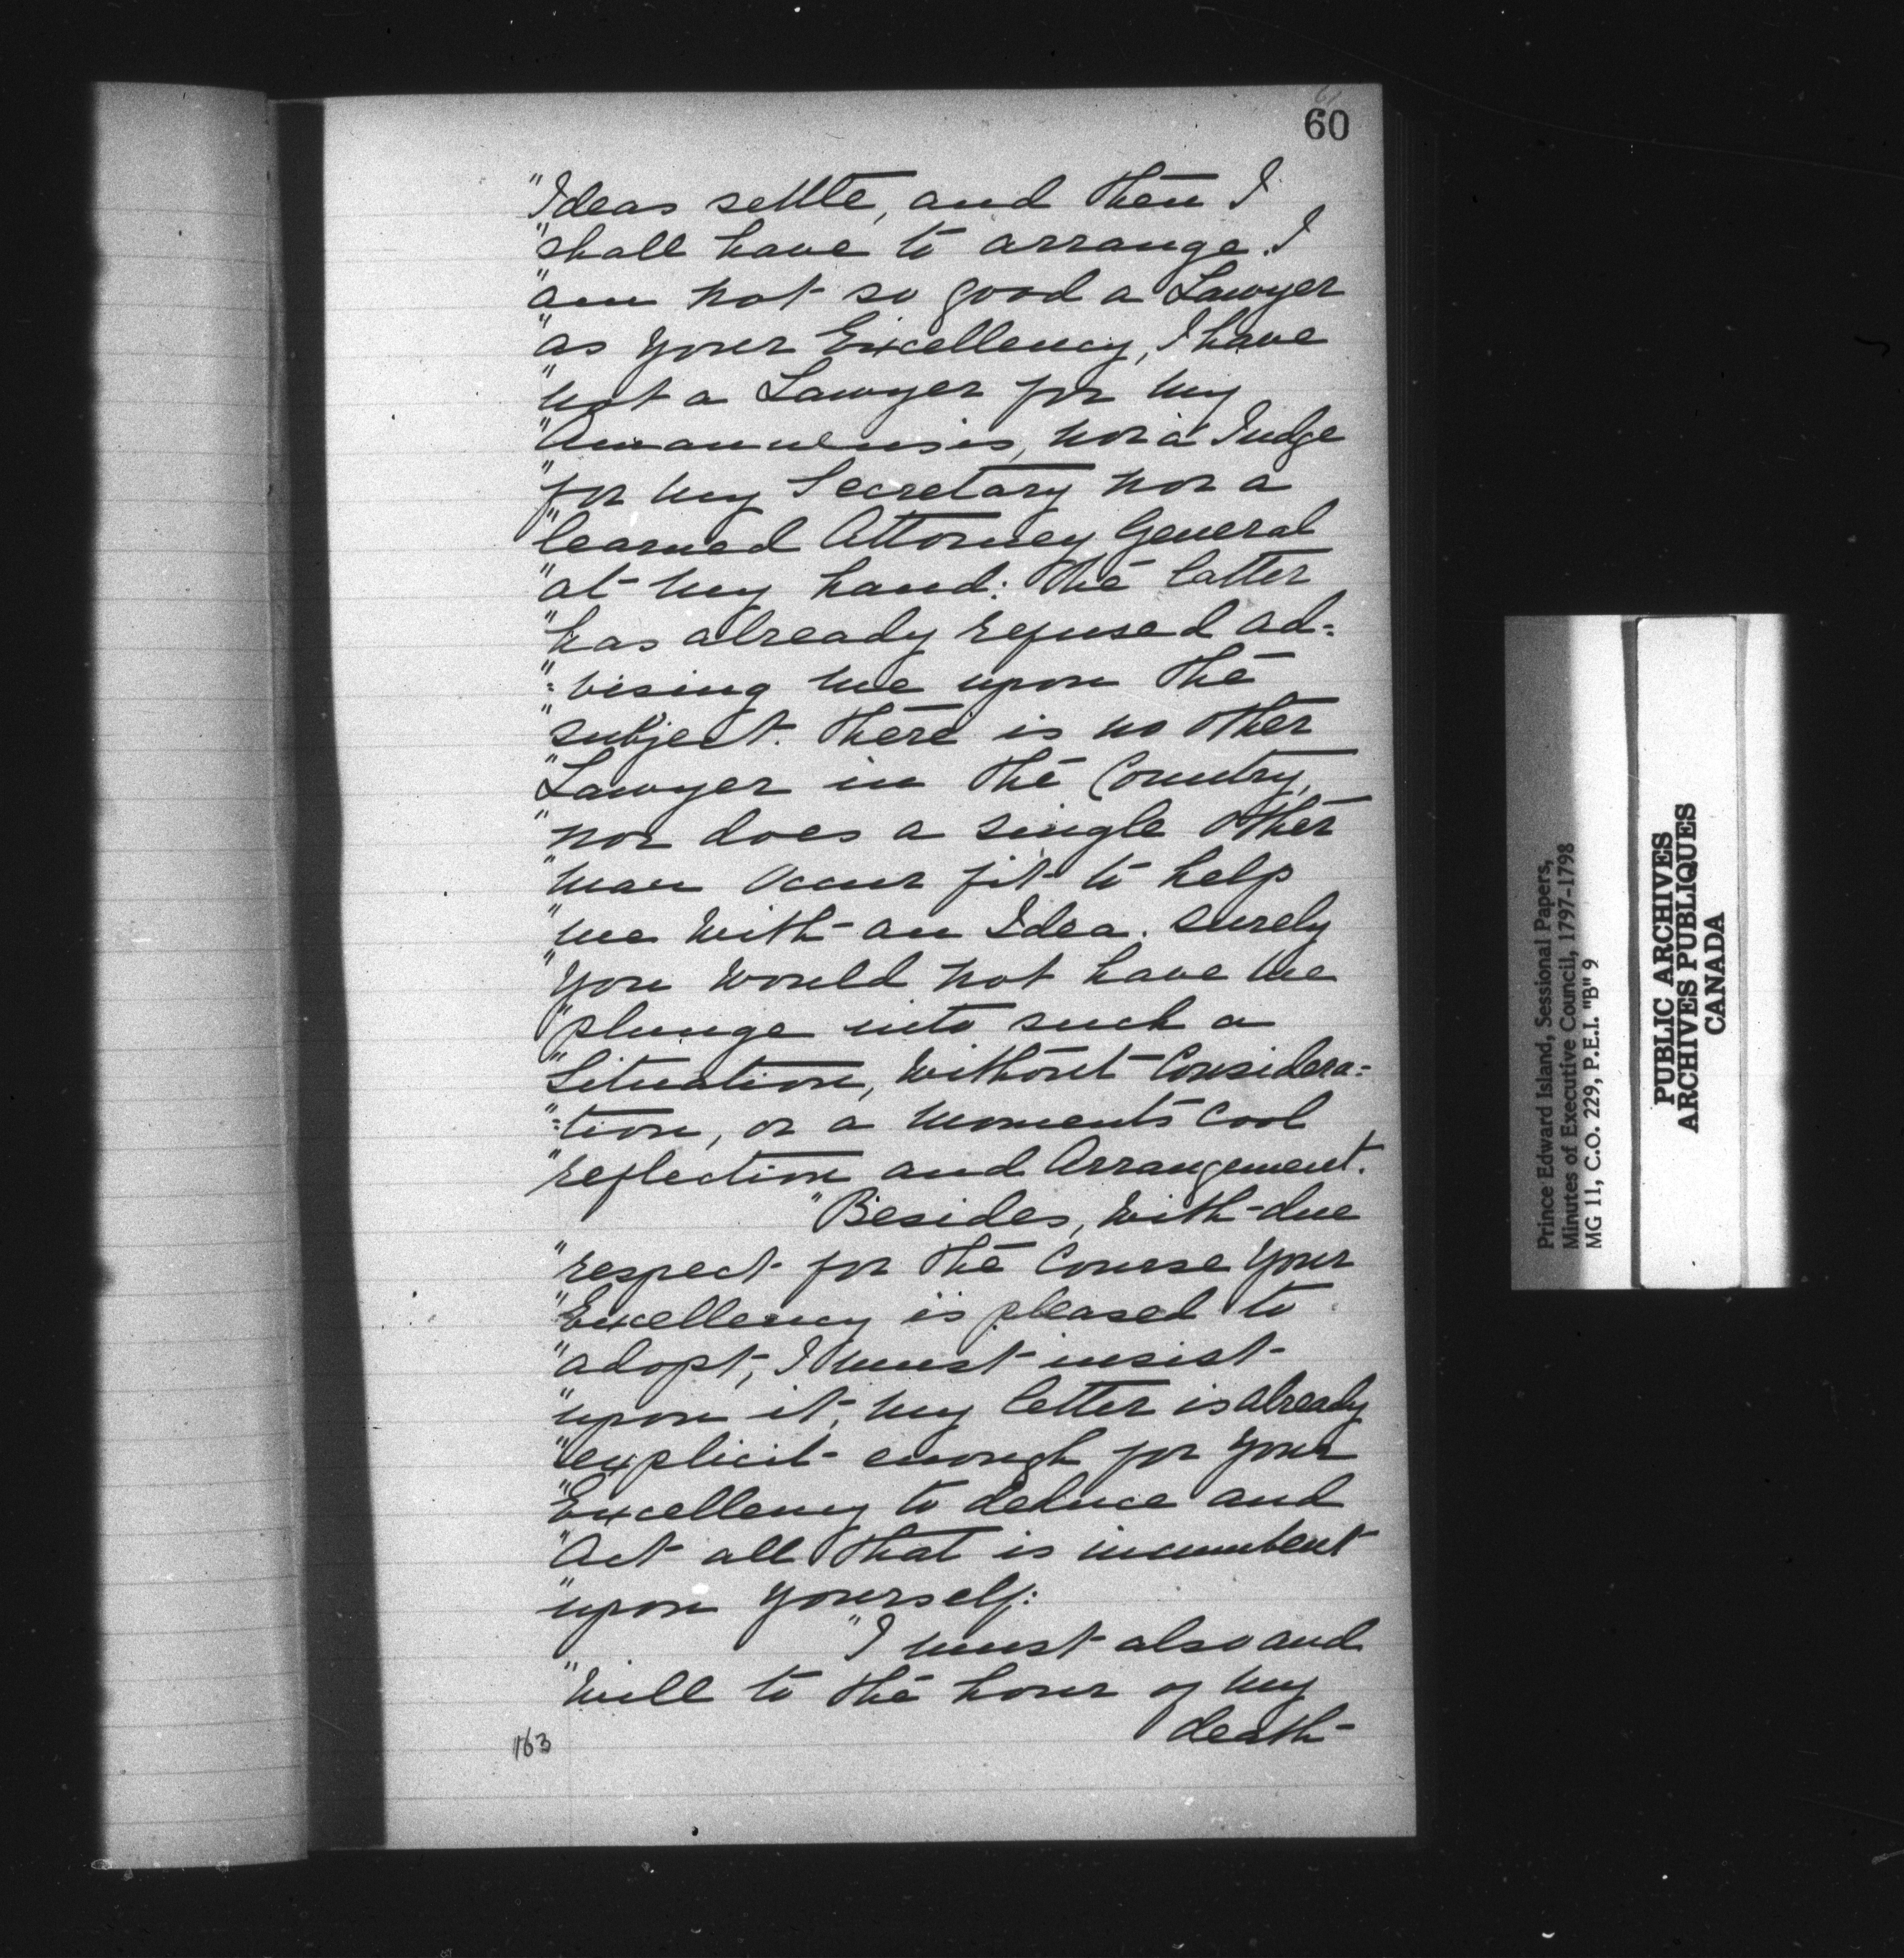 60
"Ideas settle, and then I
"shall have to arrange. I
"am not so good a Lawyer
"as your Excellency, I have
"not a Lawyer for my
"Amanuensis, nor a Judge
"for my Secretary nor a
"learned Attorney General
"at my hand: The latter
"has already refused ad=
"=vising me upon the
"subject. There is no other
"Lawyer in the Country,
"nor does a single other
"man occur fit to help
"me with an Idea. Surely
"you would not have me
"plunge into such a
"Situation, without Considera=
"=tion, or a moments cool
"reflection and Arrangement.
"Besides, with due
"respect for the Course your
"Excellency is pleased to
"adopt, I must insist
"upon it, my letter is already
"explicit enough for your
"Excellency to deduce and
"Act all that is incumbent
"upon yourself:
"I must also and
"will to the hour of my
death
163
Prince Edward Island, Sessional Papers,
Minutes of Executive Council, 1797-1798
MG 11, C.O. 229, P.E.I. "B" 9
PUBLIC ARCHIVES
ARCHIVES PUBLIQUES
CANADA